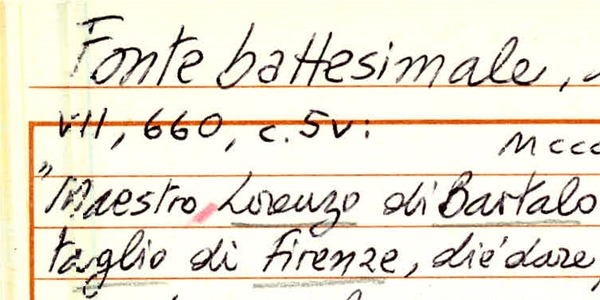 Fonte battesimale,
VII, 660, c. 5v:
Mccc
"Maestro Lorenzo di Bartalo
taglio di Firenze, die dare,